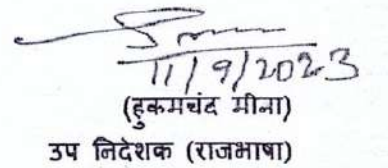 11/9/2023
(हुकमचंद मीना)
उप निदेशक (राजभाषा)